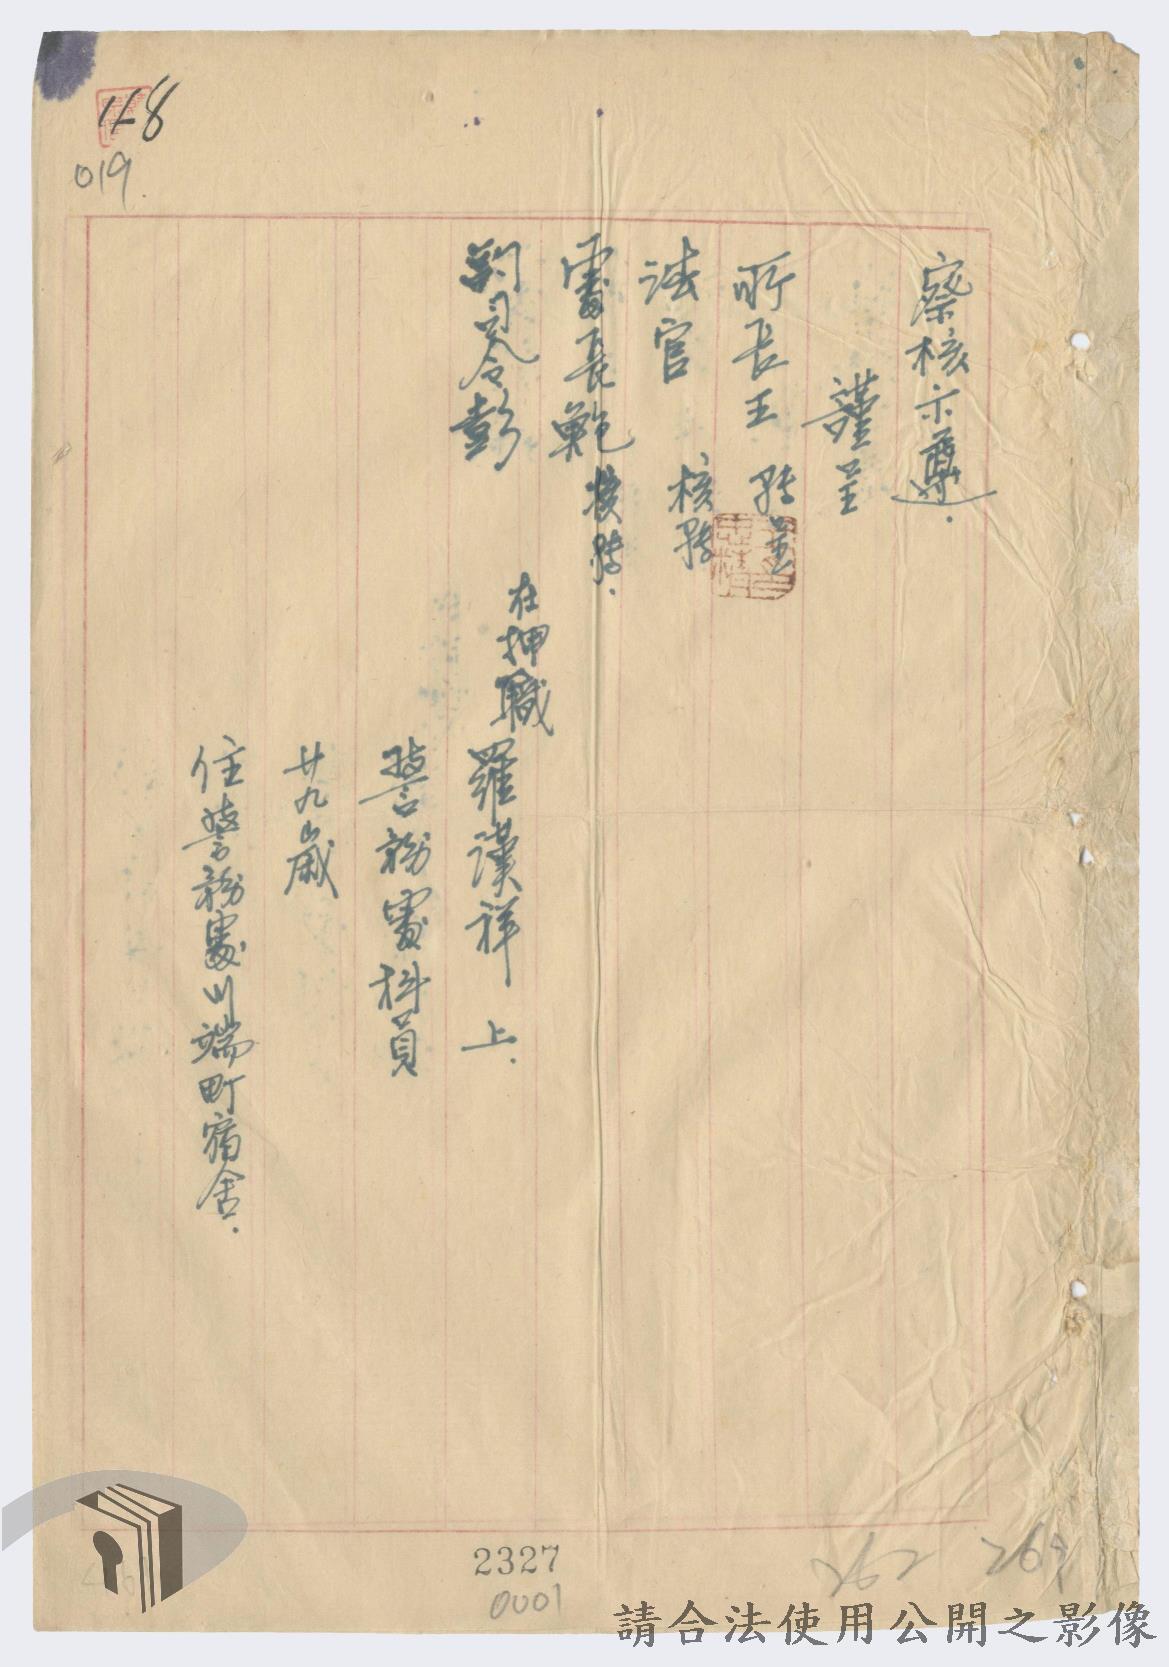 118
019
察核示遵.
謹呈
所長王 轉呈
法官 核轉
處長鮑 核轉.
副司令彭
在押職羅漢祥 上.
警務處科員
廿九歲
住警務處川端町宿舍.
2327
0001
262
263
請合法使用公開之影像